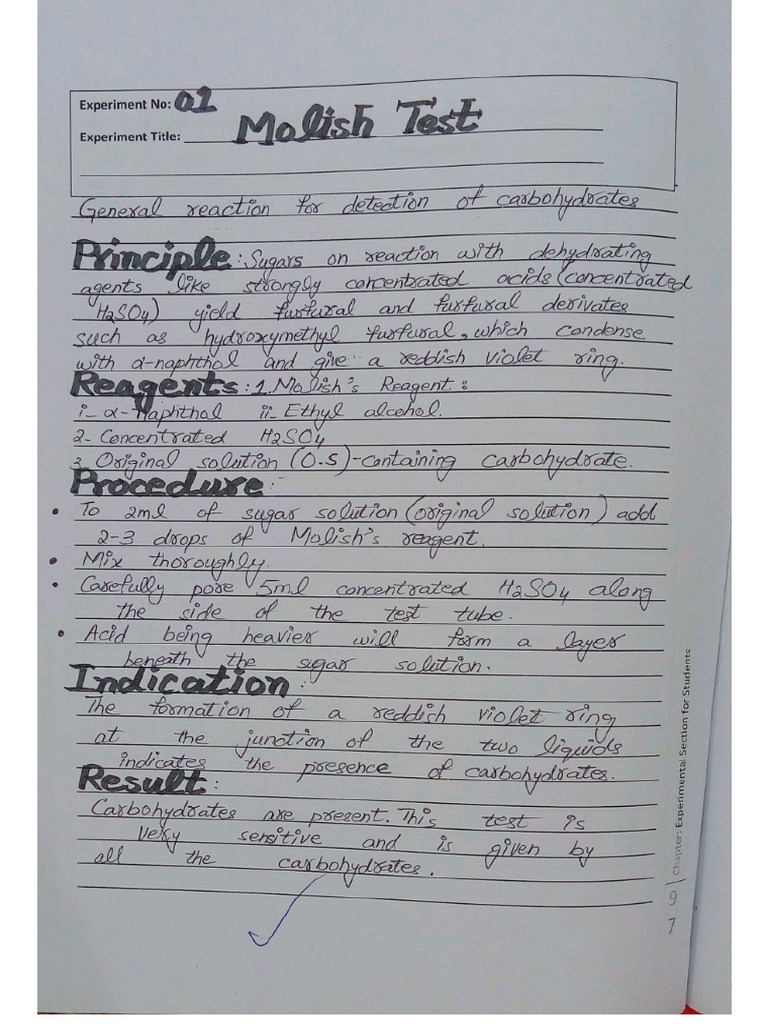 Experiment No: 01
Experiment Title: Molish Test
General reaction for detection of carbohydrates
Principle: Sugars on reaction with dehydrating
agents like strongly concentrated acids (concentrated
H2SO4) yield furfural and furfural derivates
such as hydroxymethyl furfural, which condense
with α-naphthol and give a reddish violet ring.
Reagents: 1. Molish's Reagent:
i- α-Naphthol ii- Ethyl alcohol.
2- Concentrated H2SO4
3. Original solution (O.S)-containing carbohydrate.
Procedure:-
• To 2ml of sugar solution (original solution) add
2-3 drops of Molish's reagent.
• Mix thoroughly.
• Carefully pore 5ml concentrated H2SO4 along
the side of the test tube.
• Acid being heavier will form a layer
beneath the sugar solution.
Indication:
The formation of a reddish violet ring
at the junction of the two liquids
indicates the presence of carbohydrates.
Result:
Carbohydrates are present. This test is
very sensitive and is given by
all the carbohydrates.
Chapter: Experimental Section for Students
97